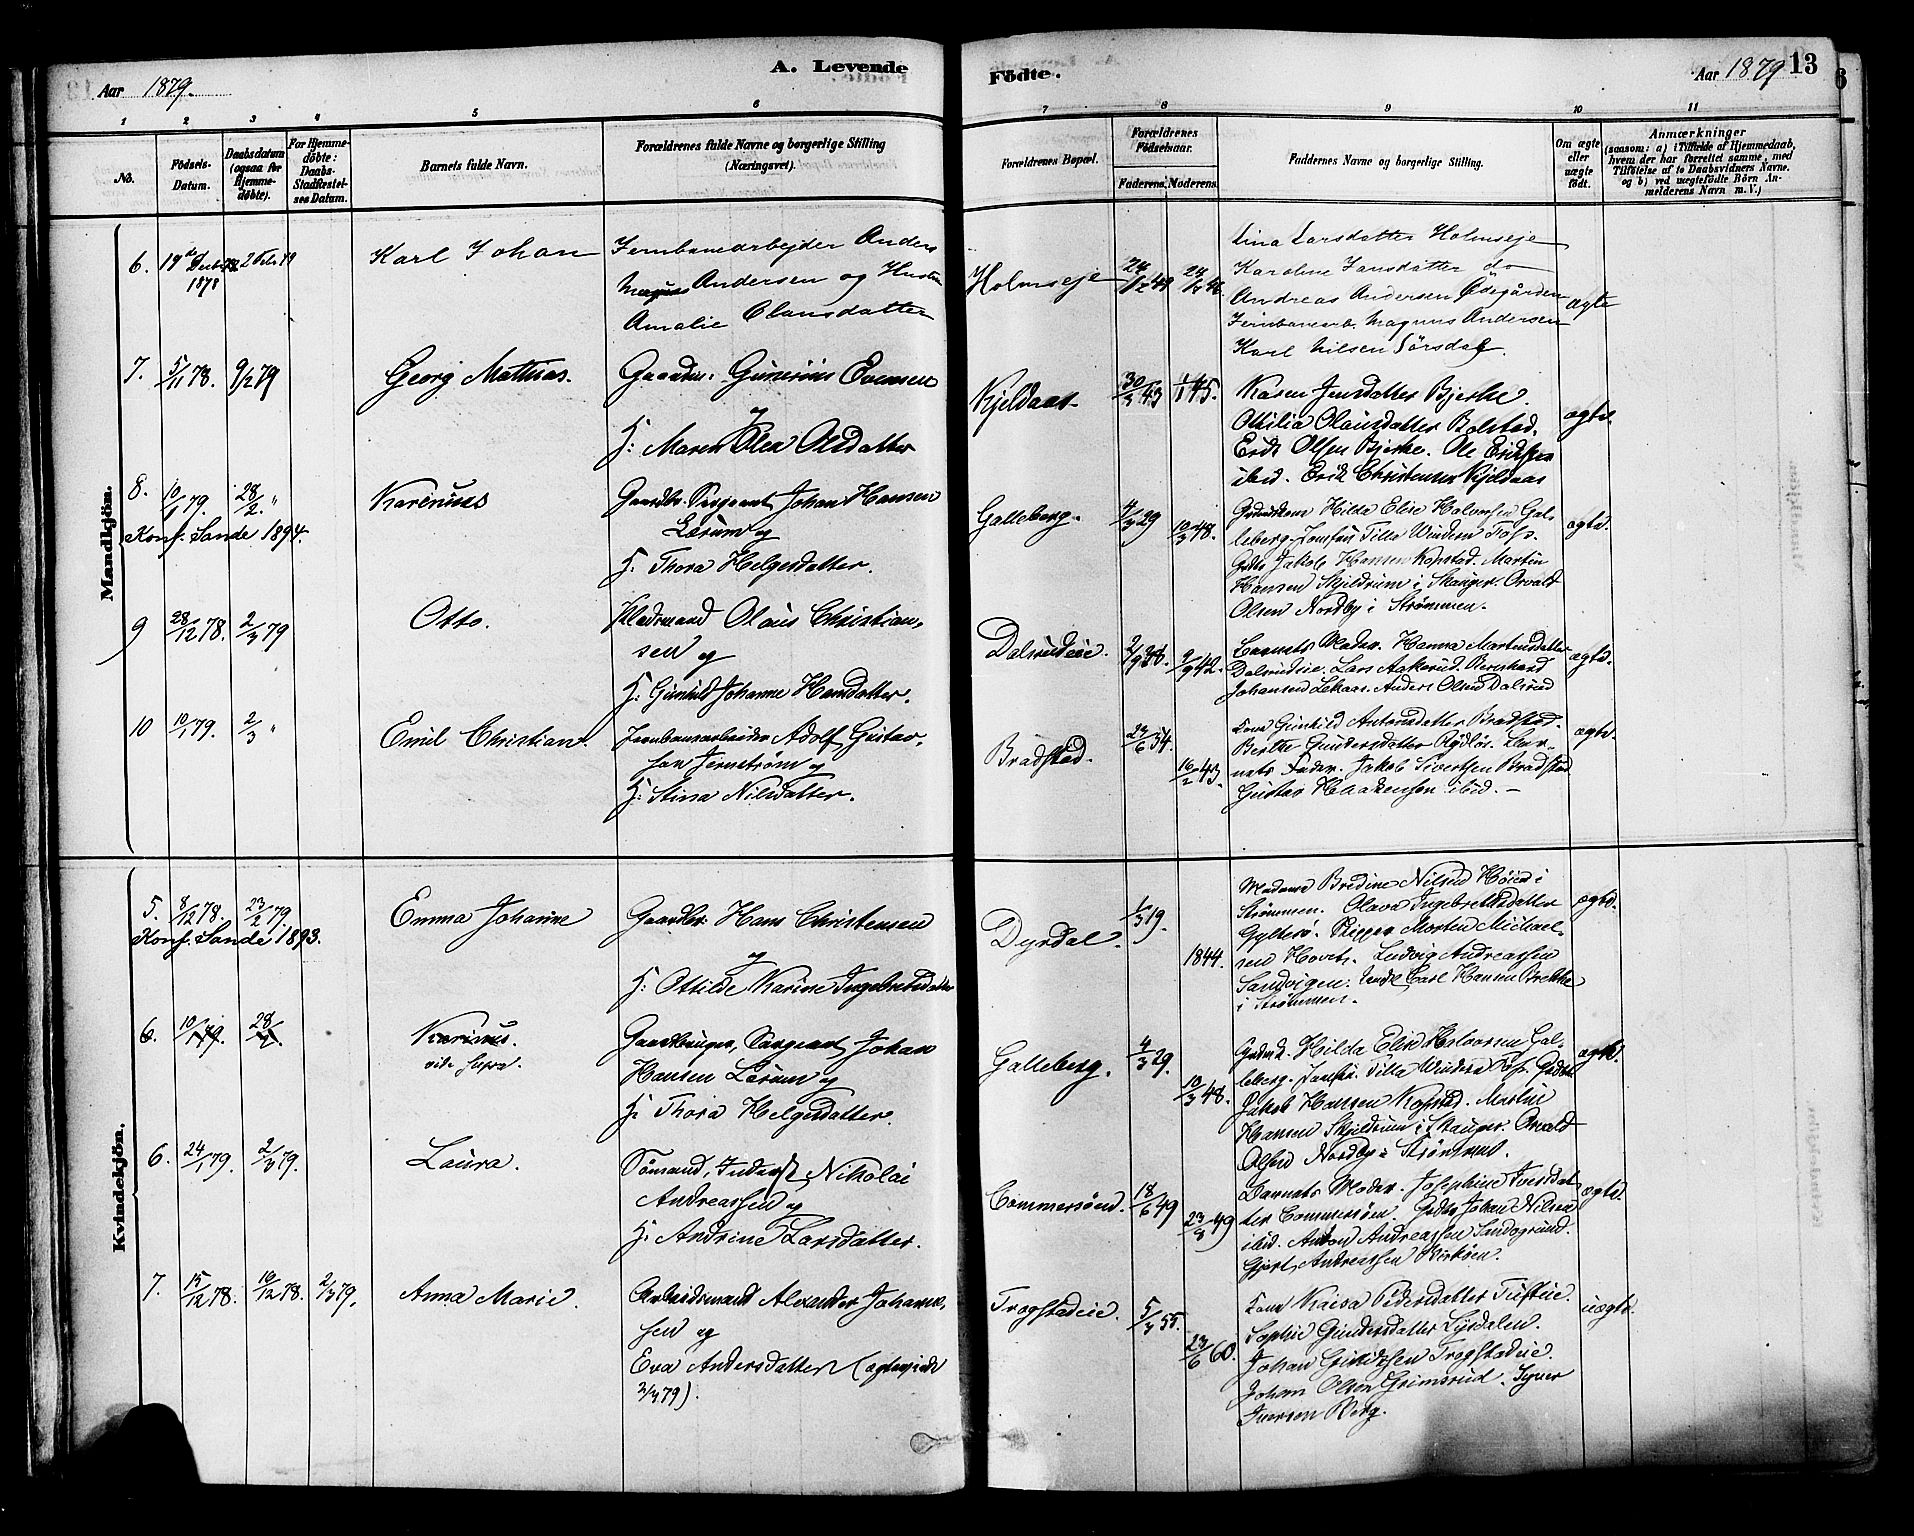 Aar 1879.
A. Levende
Fødte.
Aar 1879
13
1 2 3 4 5 6
7 8 9 10 11
No.
Fødsels-
Datum.
Daabsdatum
(ogsaa for
Hjemme-
døbte).
For Hjemme-
døbte:
Daabs-
Stadfæstel-
ses Datum.
Barnets fulde Navn.
Forældrenes fulde Navne og borgerlige Stilling
(Næringsvei).
Forældrenes Bopæl.
Forældrenes
Fødselsaar.
Faderens. Moderens.
Faddernes Navne og borgerlige Stilling.
Om ægte
eller
uægte
født.
Anmærkninger
(saasom: a) i Tilfælde af Hjemmedaab,
hvem der har forrettet samme, med
Tilføielse af to Daabsvidners Navne,
og b) ved uægtefødte Børn An-
melderens Navn m. V.)
Mandkjøn.
6. 19de Decbr 1878 2 Febr 79
Karl Johan
Jernbanearbejder Anders
Magnus Andersen og Hustru
Amalie Olausdatter
Holmseje
Lina Larsdatter Holmseje
Karoline Jansdatter do
Andreas Andersen Ødegården
Jernbanearb. Magnus Andersen
Karl Nilsen Sørsdal
ægte
7. 5/11 78. 9/2 79
Georg Mathias.
Gaardm. Gunerius Evensen
H: Maren Olea Olsdatter
Kjeldaas. 30/3 43 1/1 45.
Karen Jensdatter Bjerke.
Othilia Olausdatter Bolstad.
Erik Olsen Bjerke. Ole Eriksen
ibid. Erik Christensen Kjeldaas
ægte.
8. 10/1 79. 28/2 "
Konf. Sande 1894.
Karenius
Gaardbr. Sergeant Johan Hansen
Lerum og
H. Thora Helgesdatter.
Galleberg. 4/3 29 10/3 48.
Hilda Elise Halvorsen Gal-
leberg. Jomfru Tilla Windern Fos.
Jakob Hansen Kopstad. Martin
Hansen Skjeldrum i Skauger. Orvald
Olsen Nordby i Strømmen.
ægte.
9 28/12 78. 2/3 79
Otto.
Pladsmand Olaus Christian-
sen og
H. Gunhild Johanne Hansdatter.
Dalsrudeie. 9/9 42.
Barnets Moder. Hanna Martinsdatter
Dalsrudeie. Lars Aakerud. Bernhard
Johansen Lekaas. Anders Olsen Dalsrud
ægte.
10 10/1 79. 2/3 "
Emil Christian.
Jernbanearbeider Adolf Gustav-
sen Jernstrøm og
H. Stina Nilsdatter.
Bradstad. 23/6 34. 16/2 43.
Kone Gunhild Antonsdatter Bradstad.
Berthe Gundersdatter Rydløs. Bar-
nets Fader. Jakob Sivertsen Bradstad
Gustav Haakensen ibid. —
ægte.
Kvindekjøn.
5. 8/12 78. 23/2 79.
Konf. Sande 1893.
Emma Johanne
Gaardbr. Hans Christensen
og
H. Ottilde Karine Ingebretsdatter
Dyrdal. 1/3 19. 1844.
Madame Bredine Nilsen Høien i
Strømmen. Olava Ingebretsdatter
Gylterø. Skipper Morten Michael-
sen Hovets. Ludvig Andreassen
Sandvigen. Carl Hansen Brekke
i Strømmen.
ægte.
6. 10/1 79. 28/2
Karinus.
vide supra.
Gaardbruger, Sergeant Johan
Hansen Lerum og
H. Thora Helgesdatter.
Galleberg. 4/3 29. 10/3 48.
Hilda Elise Halvorsen Gal-
leberg. Jomfru Tilla Windern Fos.
Jakob Hansen Kopstad. Martin
Hansen Skjeldrum i Skauger. Orvald
Olsen Nordby i Strømmen.
ægte.
6. 24/1 79. 2/3 79.
Laura.
Sømand, Inderst Nikolai
Andreassen og
H. Andrine Larsdatter.
Commersøen. 18/6 49 23/8 49
Barnets Moder. Josephine Iversdat-
ter Commersøen. Johan Nilsen
ibid. Anton Andreassen Sandsgrund.
Gjert Andreassen Birkøen.
ægte.
7. 15/12 78. 19/12 78. 2/3 79.
Anna Marie.
Arbeidsmand Alexander Johann-
sen og
Eva Andersdatter (ægteviede
2/4 79).
Trogstadeie. 5/3 55. 23/6 60.
Kone Kaisa Pedersdatter Tufteie.
Sophie Gundersdatter Lysdalen.
Johan Trogstadeie.
Johan Olsen Grimsrud. Syver
Iversen Berg.
uægte.